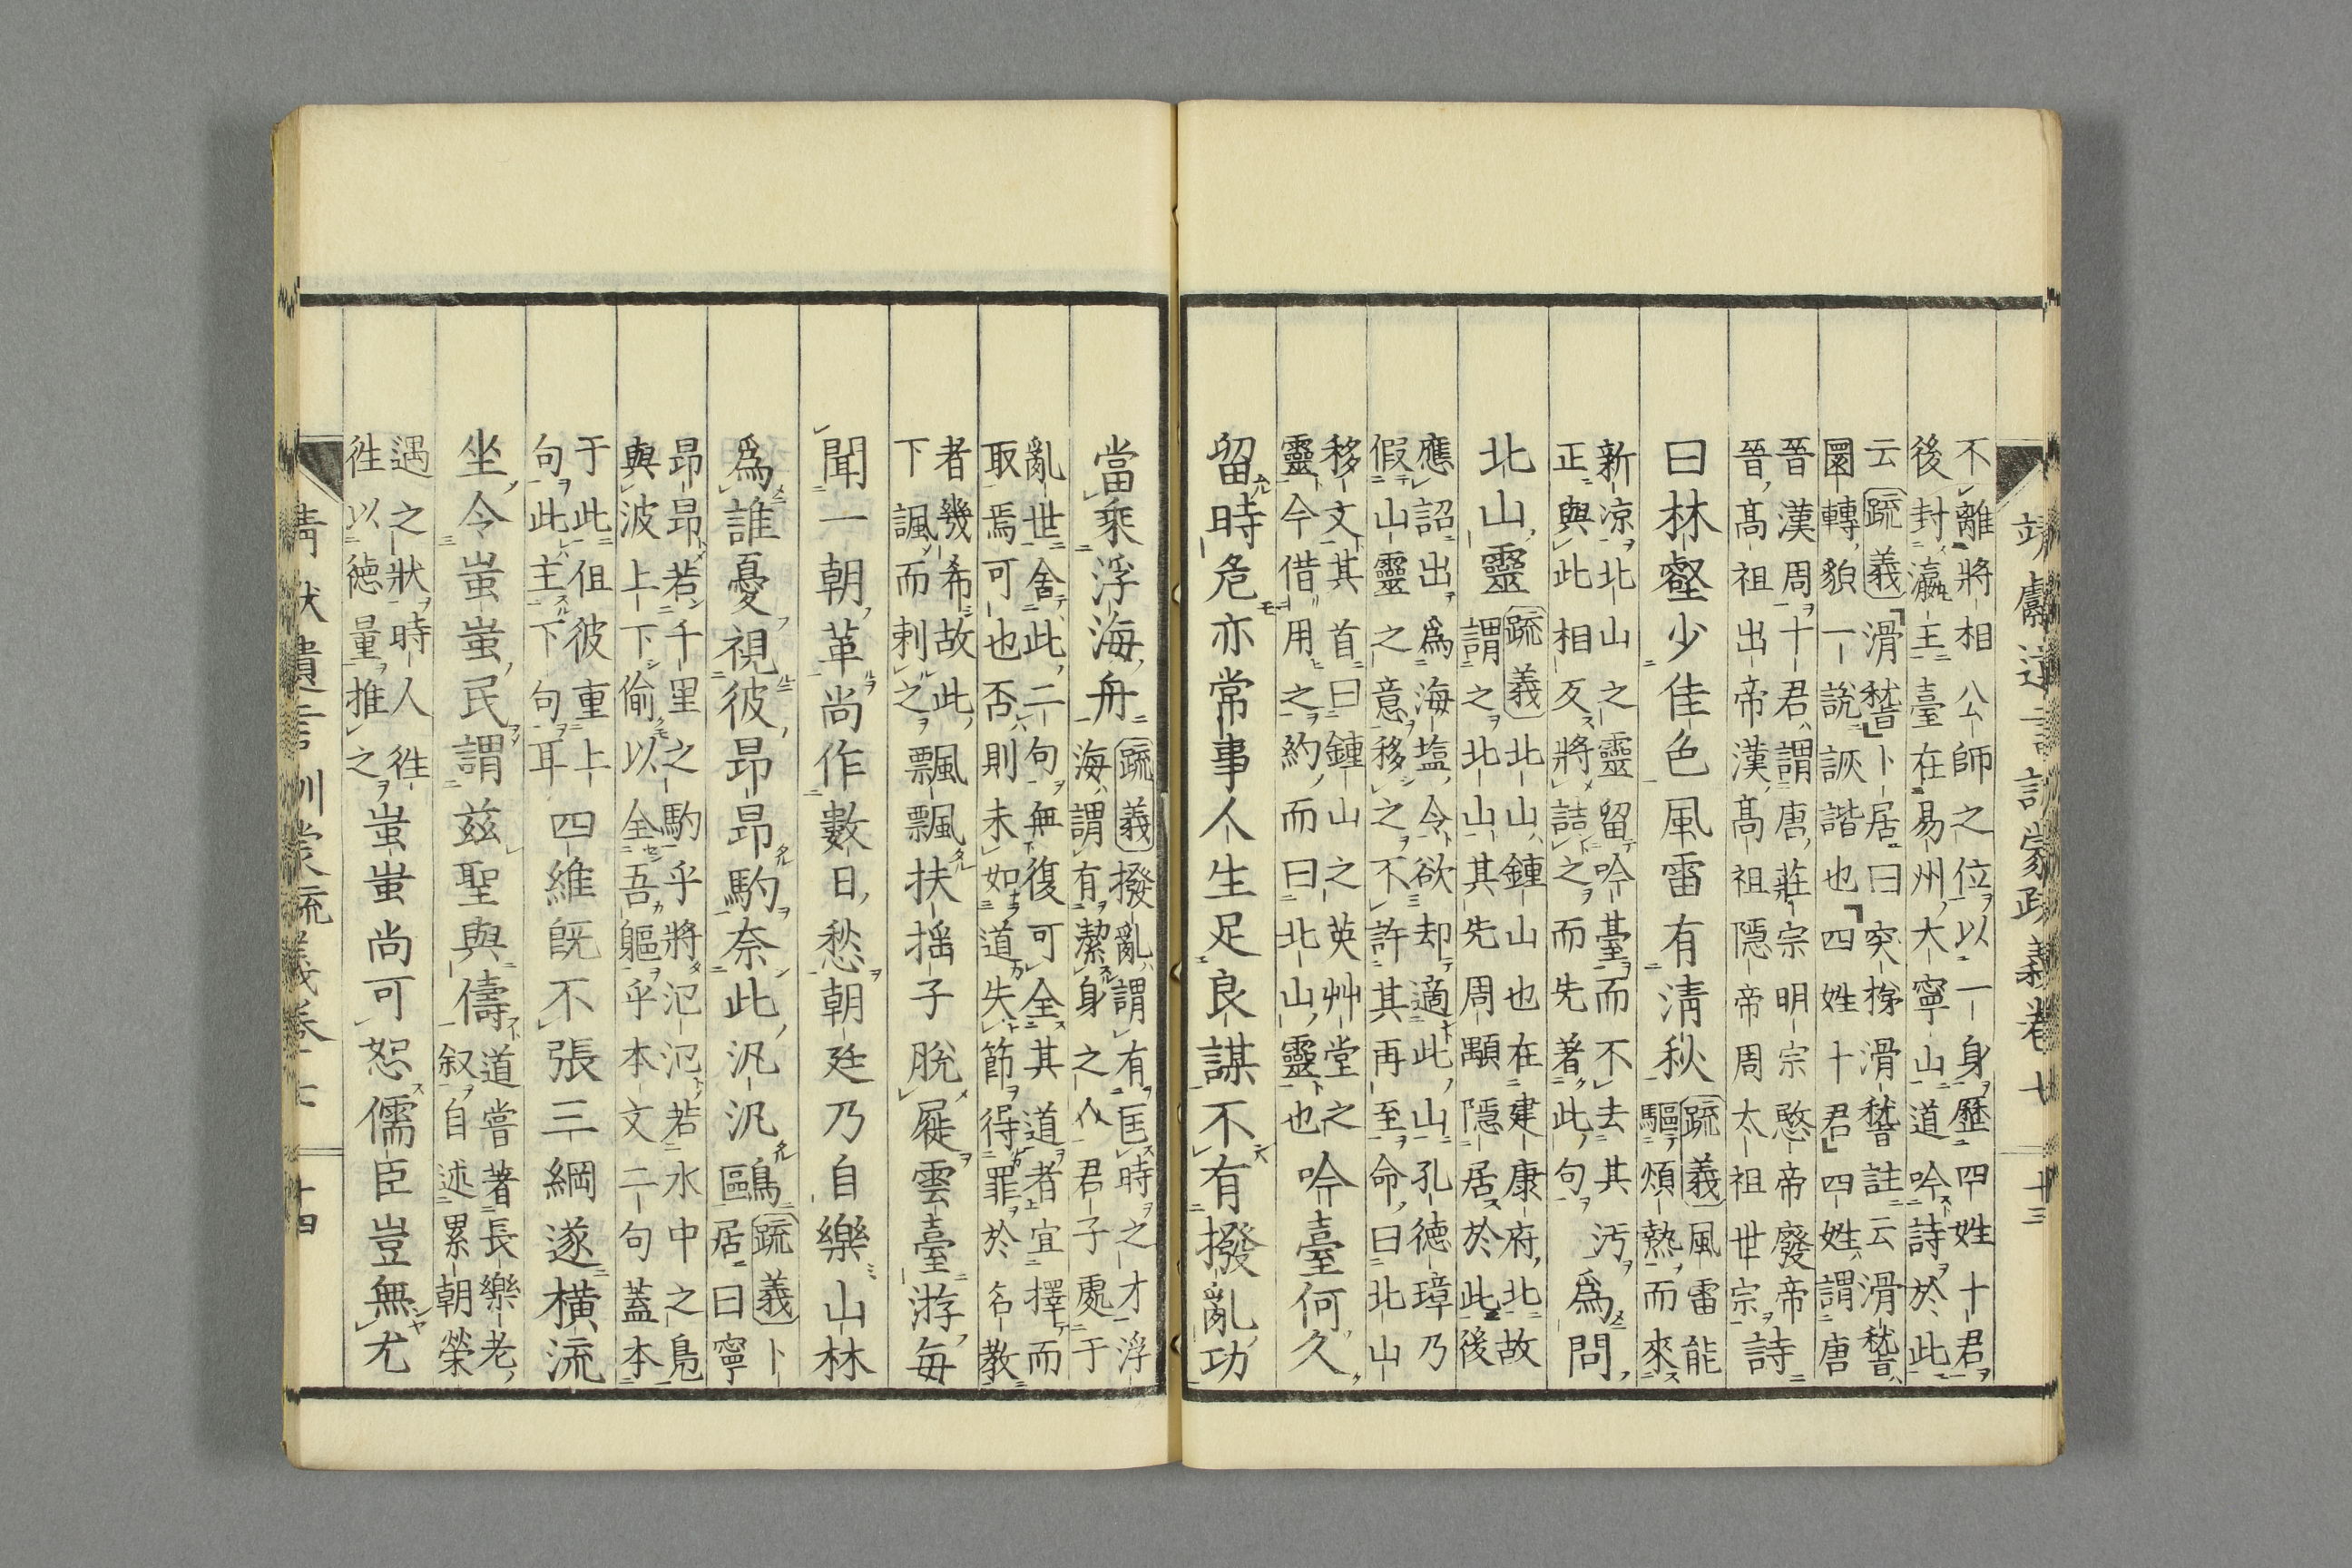 靖獻遺言訓蒙疏義卷七 十三
不離將相公師之位以一身歷四姓十君
後封瀛王臺在易州大寧山道吟詩於此
云疏義滑稽卜居曰突梯滑稽註云滑稽
圜轉貌一說詼諧也四姓十君四姓謂唐
晉漢周十君謂唐莊宗明宗愍帝廢帝
晉高祖出帝漢高祖隱帝周太祖世宗
詩
曰林壑少佳色風雷有清秋
疏義風雷能
驅煩熱而來
新凉北山之靈留吟臺而不去其汚
正與此相反將詰之而先著此句
爲問
北山靈
疏義北山鍾山也在建康府北故
謂之北山其先周顒隱居於此後
應詔出爲海塩令欲却適此山孔德璋乃
假山靈之意移之不許其再至命曰北山
移文其首曰鍾山之英艸堂之
靈今借用之約而曰北山靈也
吟臺何久
留時危亦常事人生足良謀不有撥亂功
當乘浮海舟
疏義撥亂謂有匡時之才浮
海謂有潔身之人君子處于
亂世舍此二句無復可全其道者宜擇而
取焉可也否則未如道失節得罪於名教
者幾希故此
下諷而刺之
飄飄扶搖子脫屣雲臺游每
聞一朝革尚作數日愁朝廷乃自樂山林
爲誰憂視彼昂昂駒奈此汎汎鷗
疏義卜
居曰寧
昂昂若千里之駒乎將氾氾若水中之鳧
與波上下偷以全吾軀乎本文二句蓋本
于此但彼重上
句此主下句耳
四維旣不張三綱遂橫流
坐令蚩蚩民謂茲聖與儔
道嘗著長樂老
叙自述累朝榮
遇之狀時人徃
徃以德量推之
蚩蚩尚可恕儒臣豈無尤
靖獻遺言訓蒙疏義卷七 十四